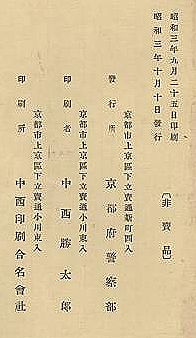 昭和三年九月二十五日印刷
昭和三年十月十日發行
〔非賣品〕
京都市上京區下立賣通新町西入
發行所 京都府警察部
京都市上京區下立賣通小川東入
印刷者 中西勝太郎
京都市上京區下立賣通小川東入
印刷所 中西印刷合名會社